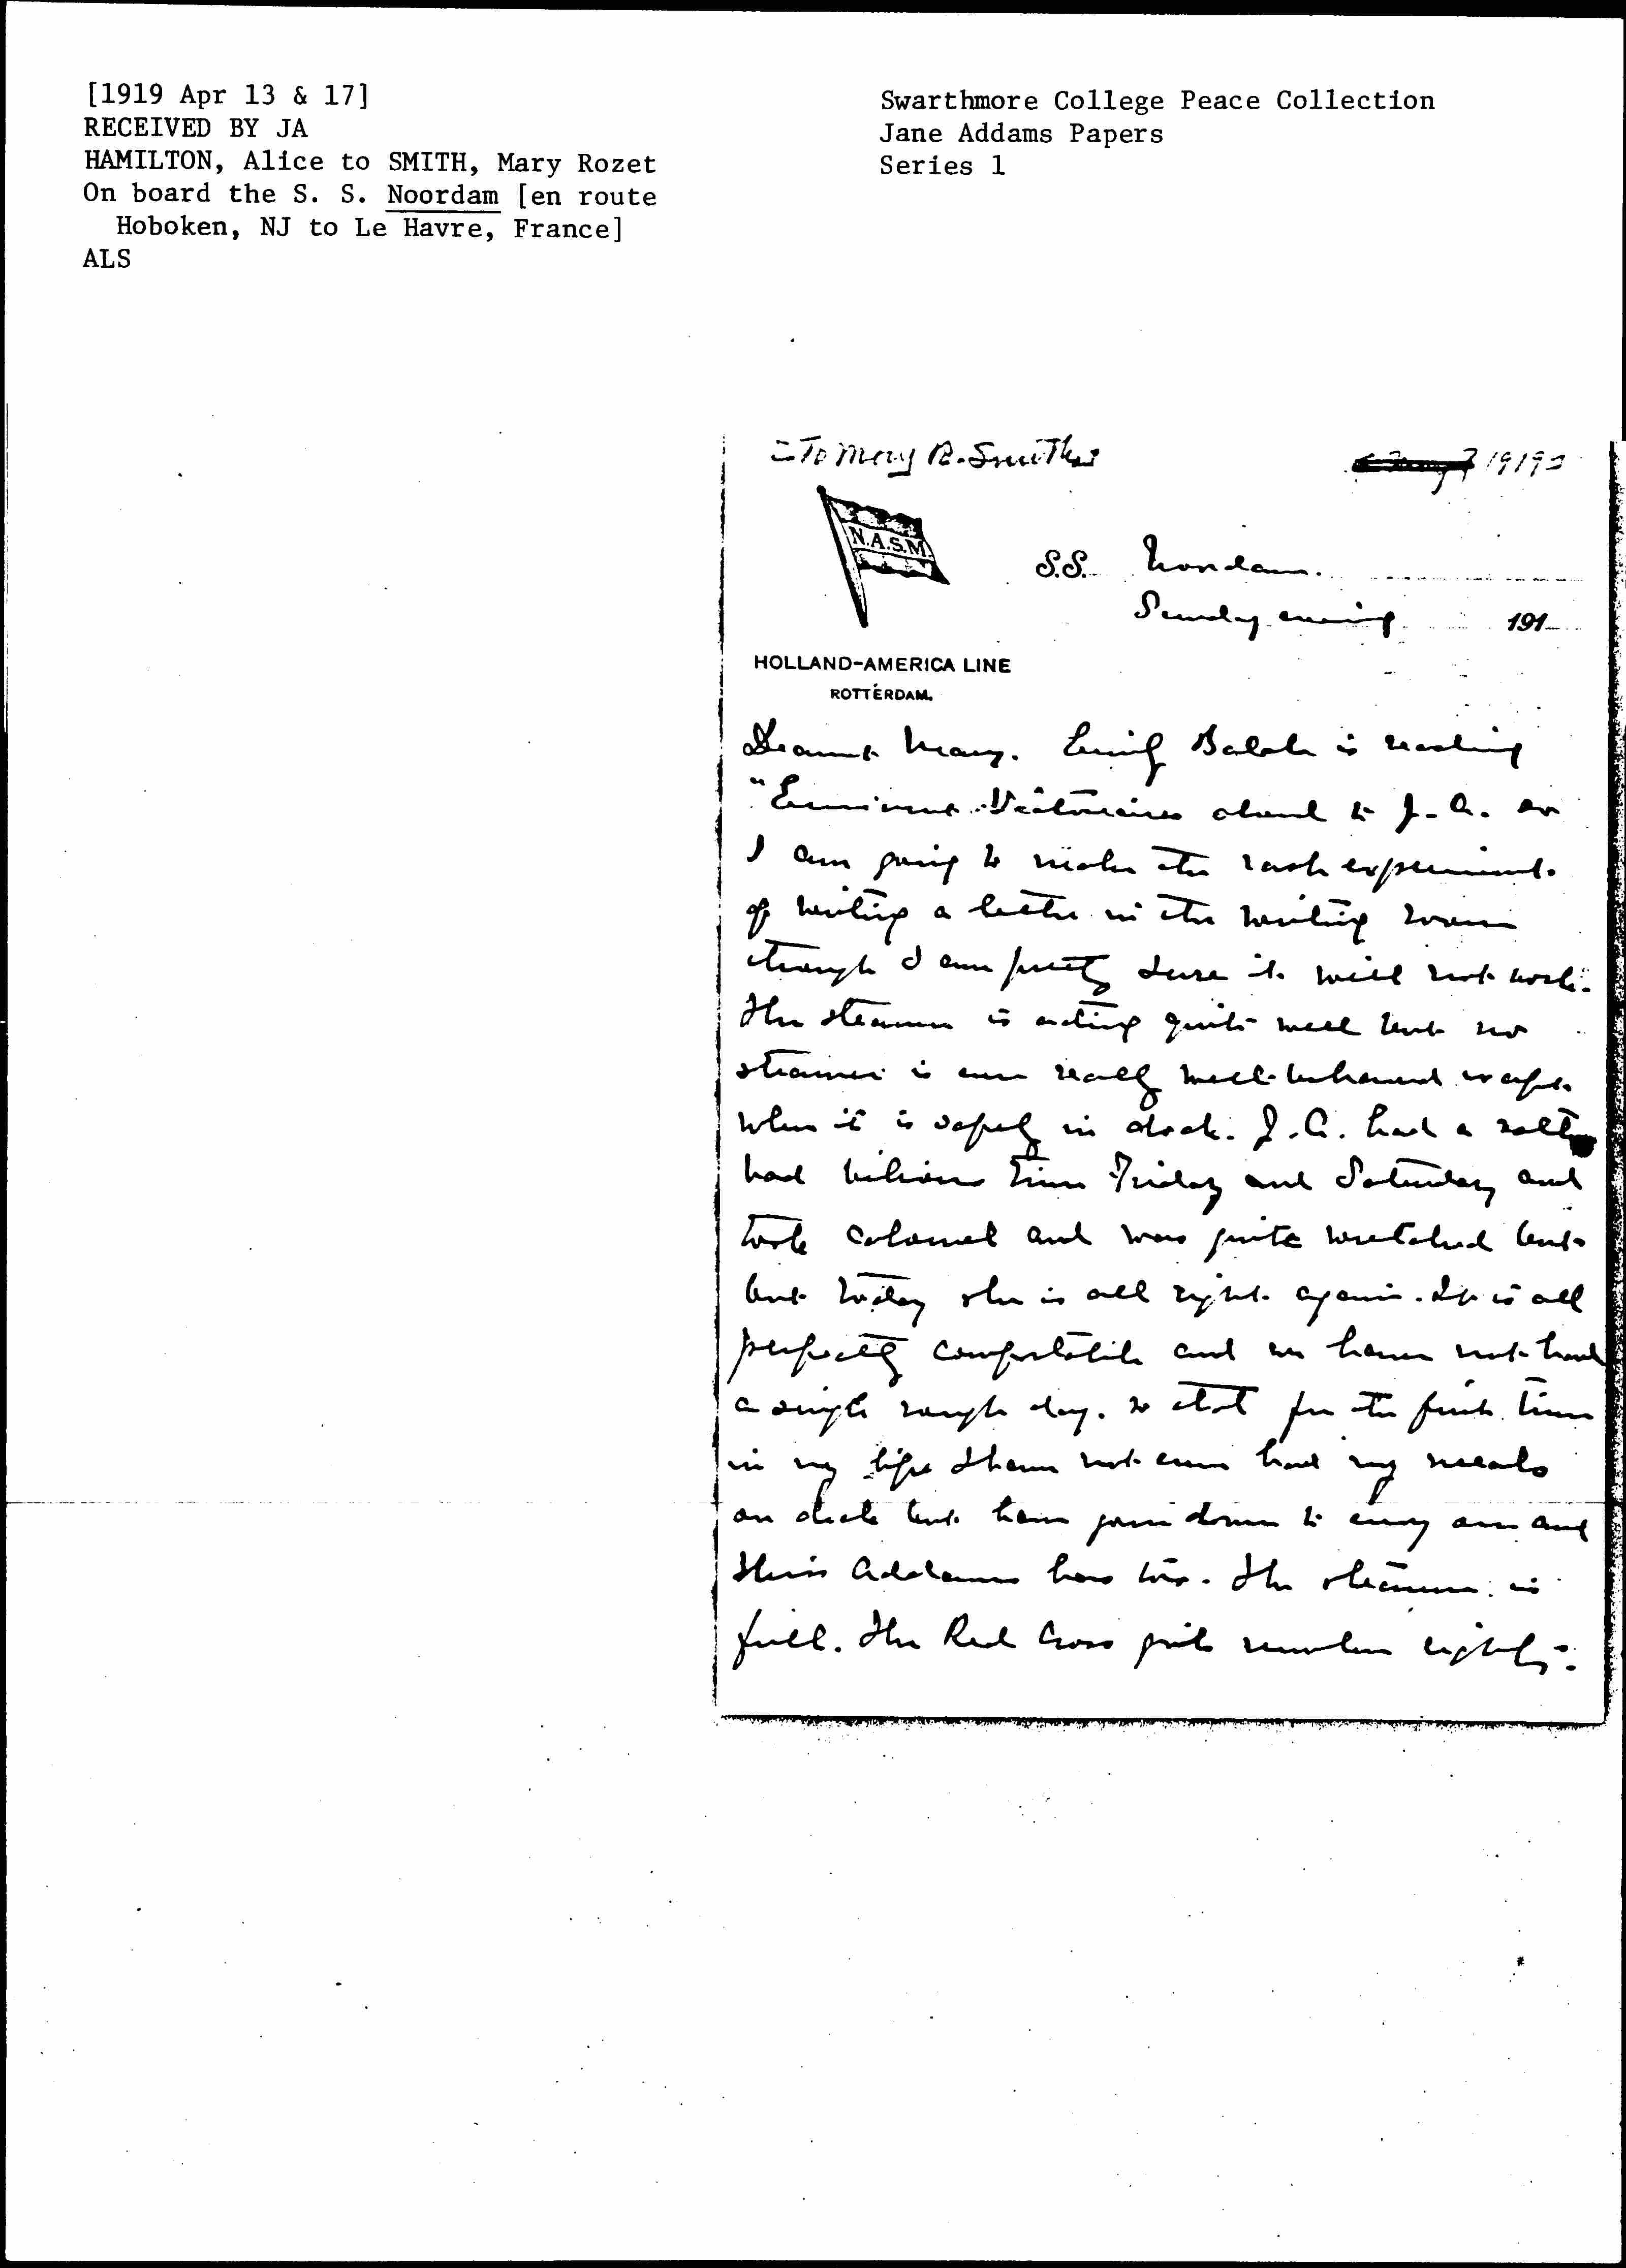 [1919 Apr 13 & 17]
RECEIVED BY JA
HAMILTON, Alice to SMITH, Mary Rozet
On board the S. S. Noordam [en route
Hoboken, NJ to Le Havre, France]
ALS
Swarthmore College Peace Collection
Jane Addams Papers
Series 1
To Mary R. Smith
1919
N.A.S.M.
S.S. Noordam.
Sunday evening 191
HOLLAND-AMERICA LINE
ROTTERDAM.
Dearest Mary. Emily Balch is reading
"Eminent Victorians aloud to J.A. so
I am going to make the rash experiment
of writing a letter in the writing room
though I am pretty sure it will not work.
The steamer is acting quite well but no
steamer is ever really well-behaved except
when it is safely in dock. J.A. had a rather
bad bilious time Friday and Saturday and
took calomel and was quite wretched but
but today she is all right again. It is all
perfectly comfortable and we have not had
a single rough day. so that for the first time
in my life I have not even had my meals
on deck but have gone down to every one and
Miss Addams has too. The steamer is
full. The Red Cross girls number eighty